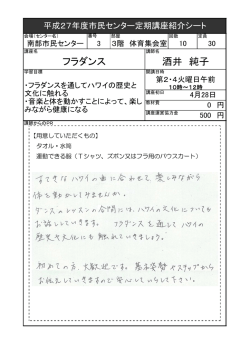 平成27年度市民センター定期講座紹介シート
会場(センター名) 番号 部屋 回数 定員
南部市民センター 3 3階 体育集会室 10 30
講座名 講師名
フラダンス 酒井 純子
学習目標 開講日時
・フラダンスを通してハワイの歴史と文化に触れる
・音楽と体を動かすことによって、楽しみながら健康になる
第2・4火曜日午前
10時~12時
講座初日 4月28日
教材費 0 円
講座運営協力金 500 円
講師からのPR
【用意していただくもの】
タオル・水筒
運動できる服(Tシャツ、ズボン又はフラ用のパウスカート)
すてきなハワイの曲に合わせて、楽しみながら
体を動かしてみませんか。
ダンスのレッスンの合間には、ハワイの文化についても
お話ししていきます。 フラダンスを通してハワイの
歴史や文化にも触れていきましょう。
初めての方、大歓迎です。基本姿勢やステップから
お伝えしていきますので安心していらしてください。